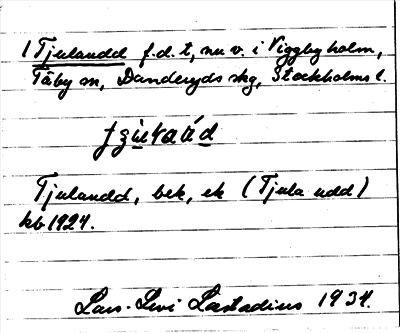 1 Tjulaudd f.d. t, nu v. i Viggbyholm,
Täby sn, Danderyds skg, Stockholms l.
Tjulaudd, bek, ek (Tjula udd)
kb 1924.
Lars-Levi Læstadius 1934.